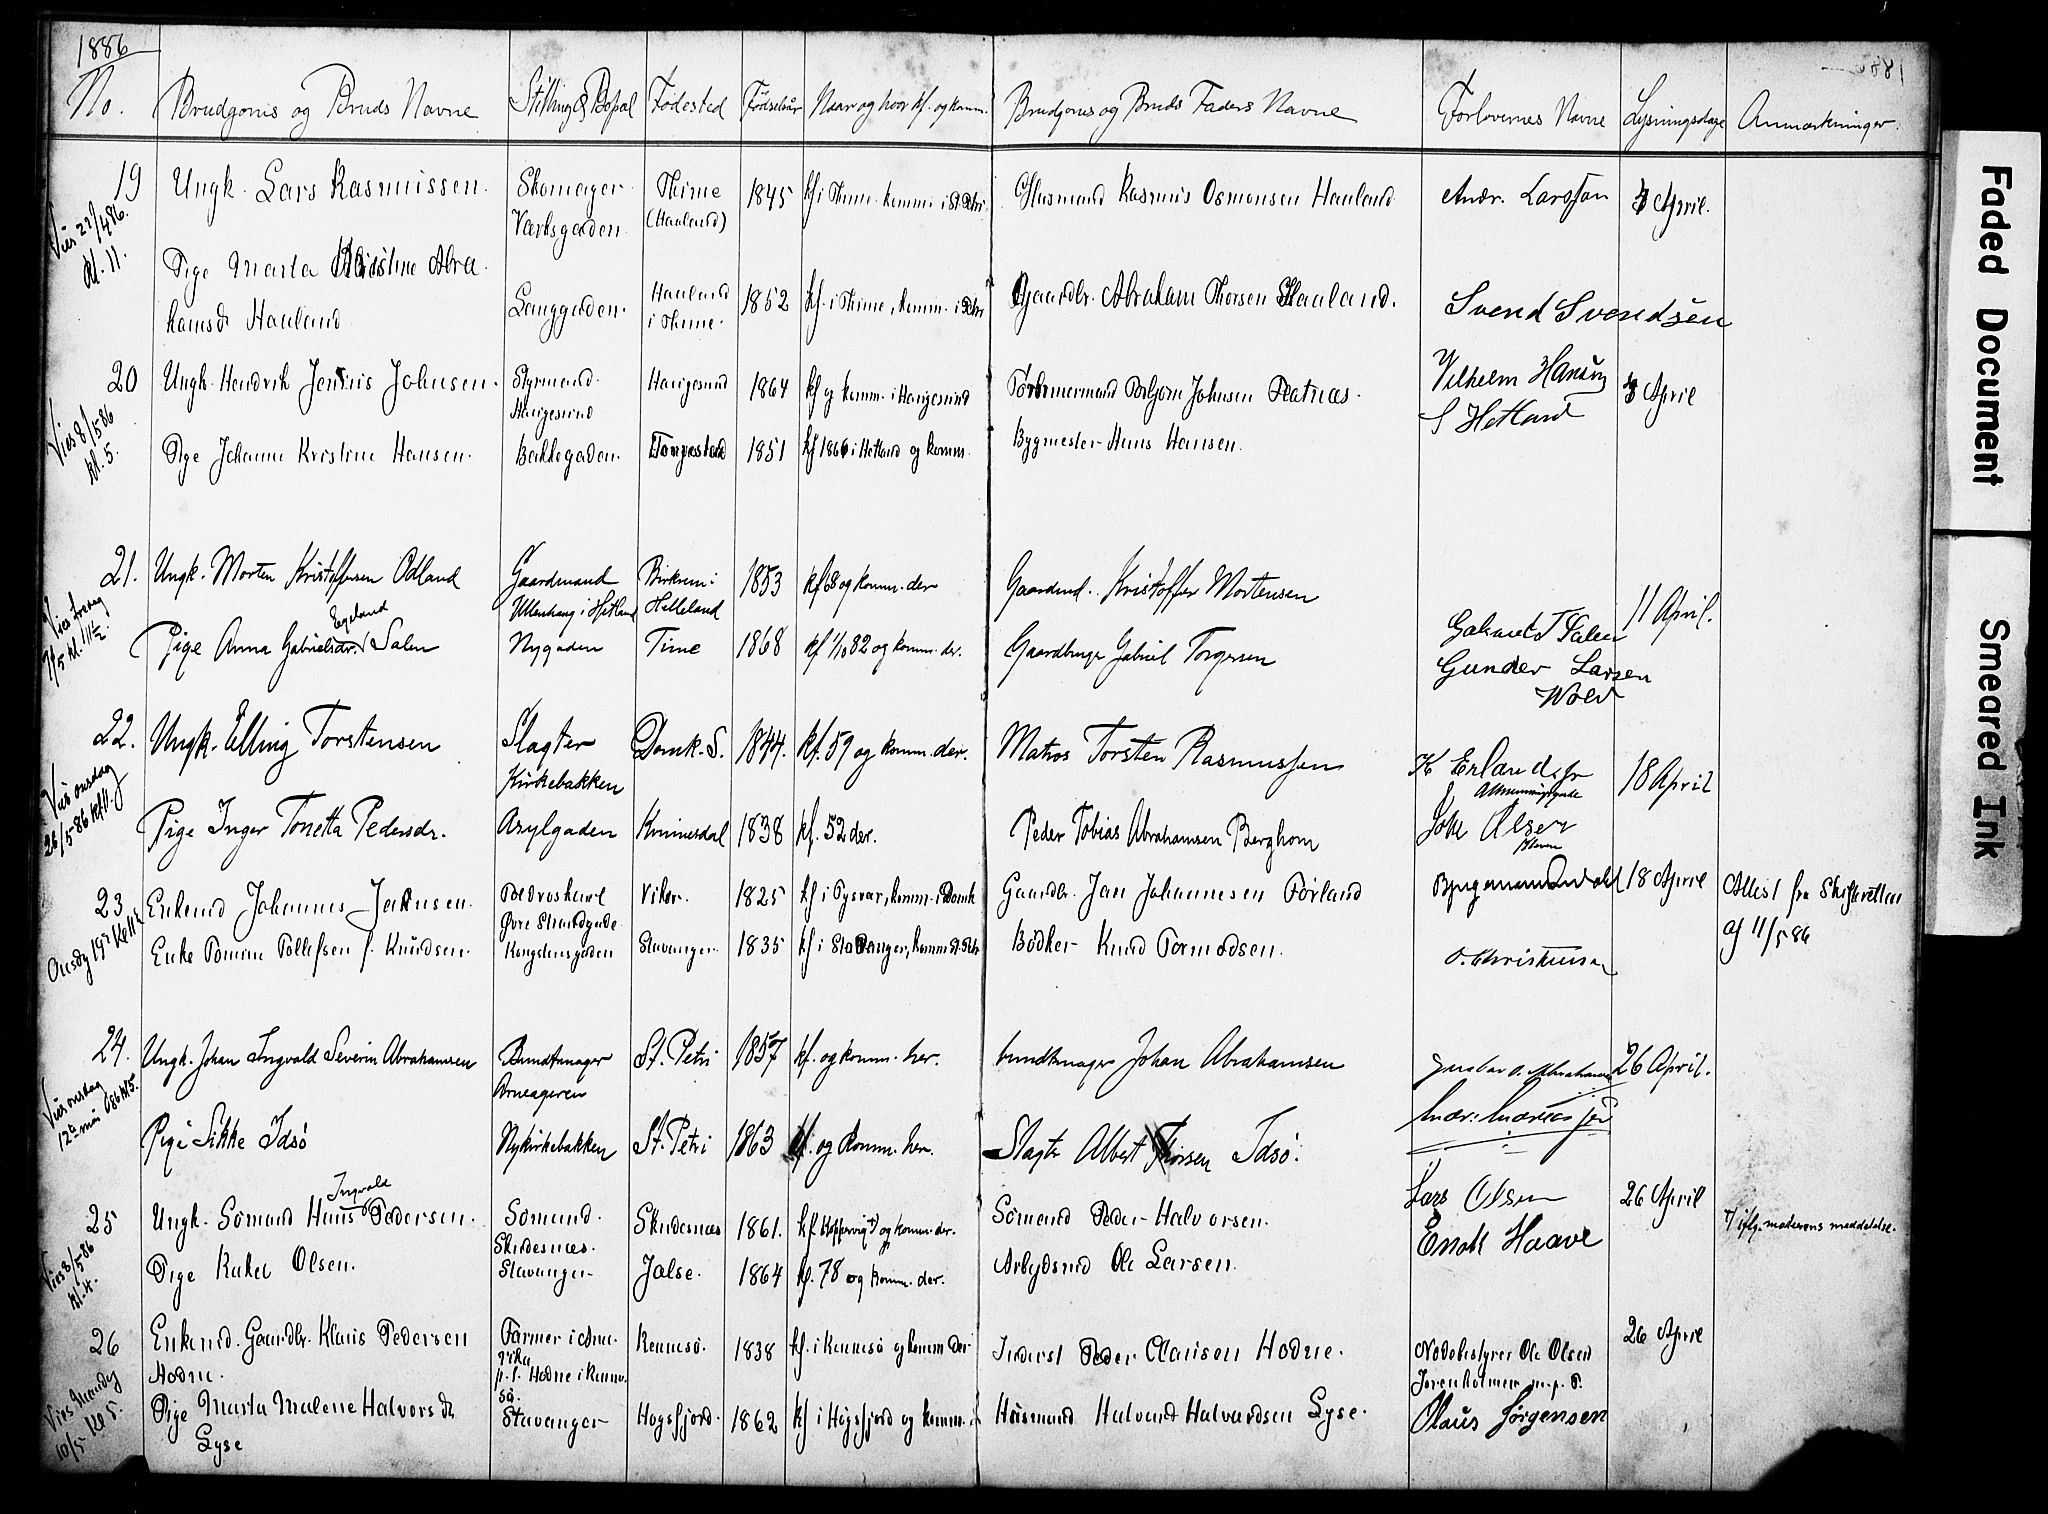 1886
No.
Brudgoms og Bruds Navne
Stilling & Bopæl
Fødested
Fødselsår
Naar og hvor kf. og komm.
Brudgoms og Bruds Faders Navne
Forlovernes Navne
Lysningsdage
Anmærkninger.
19
Vies 22/4 86.
kl. 11.
Ungk. Lars Rasmussen.
Skomager
Værksgaden.
Thime
(Haaland)
1845
kf i Thime. komm. i St. Petri.
Husmand Rasmus Osmonsen Haaland
Andr. Larssen
4 April.
Pige Marta Kristine Abra-
hamsdr Haaland
Langgaden.
Haaland
i Thime.
1852
kf. i Thime, komm. i Petri
Gaardbr. Abraham Thorsen Haaland.
Svend Svendsen
20
Vies 8/5 86
kl. 5.
Ungk. Hendrik Jenius Johnsen.
Styrmand.
Haugesund
Haugesund
1864
kf og komm. i Haugesund
Tømmermand Torbjørn Johnsen
Vilhelm Hansen
S Hetland
4 April
Pige Johanne Kristine Hansen.
Bakkegaden.
1851
kf 1866 i Hetland og komm.
Bygmester Hans Hansen.
21.
Vies fredag
7/5 kl. 11 1/2.
Ungk. Morten Kristoffersen Odland
Gaardmand
Ullenhaug i Hetland
Birkrem i
Helleland
1853
kf 68 og komm. der
Gaardmd. Kristoffer Mortensen
11 April.
Egeland
Pige Anna Gabrielsdr. Salen
Nygaden
Time
1868
kf 1/10 82 og komm. der.
Gaardbruger Gabriel Torgersen
Gabriel T Salen
Gunder Larsen
Wold
22.
Vies onsdag
26/5 86 kl 11.
Ungk. Elling Torstensen
Slagter
Kirkebakken
Domk. S.
1844.
kf. 59 og komm. der.
Matros Torsten Rasmussen
K Erlandsen
18 April
Pige Inger Tonetta Pedersdr.
Asylgaden
Kvinesdal
1838
kf. 52 der.
Peder Tobias Abrahamsen Berghom
Olsen
23
Onsdag 19de Kl 11 1/2
Enkemd Johannes Jansen.
Øvre Strandgade
Vikør.
1825
kf i Tysvær, komm. i Domk
Gaardbr. Jan Johannesen Førland
18 April
Attest fra Skifteretten
af 11/5 86
Enke Tomine Tollefsen f. Knudsen.
Kongstensgaden
Stavanger
1835
kf i Stavanger, komm. St. Petri
Bødker Knud Tormodsen.
O. Christensen
24.
Vies onsdag
12te mai 86 kl 5.
Ungk. Johan Ingvald Severin Abrahamsen
Bundtmager
Arneageren
St. Petri
1857
kf. og komm. her.
bundtmager Johan Abrahamsen
Gustav A. Abrahamsen
26 April.
Pige Sikke Idsø
Nykirkebakken
St. Petri
1863
kf. og komm. her.
Slagter Albert Thorsen Idsø.
25
Vies 8/5 86
kl. 4.
Ingvald
Ungk. Sømand Hans Pedersen.
Sømand.
Skudesnæs.
Skudesnæs
1861.
kf. Kopervig +) og komm. der.
Sømand Peder Halvorsen.
Lars Olsen
26 April
+) iflg. moderens meddelelse.
Pige Rakel Olsen.
Stavanger
Jælse.
1864
kf. 78 og komm. der.
Arbeidsmd Ole Larsen.
Enok Haave
26
Vies Mandag
10/5 Kl 5.
Enkemd. Gaardbr. Klaus Pedersen
Hodne.
Farmer i Ame-
rika
p. t. Hodne i Renne-
sø.
Rennesø.
1838
kf. i Rennesø og komm. der
Inderst Peder Clausen Hodne.
Nodebestyrer Ole Olsen
26 April
Pige Marta Malene Halvorsdr
Lyse
Stavanger
Høgsfjord.
1862
kf i Høgsfjord og komm.
Husmand Halvard Halvardsen Lyse.
Olaus Jørgensen
Faded Document
Smeared Ink